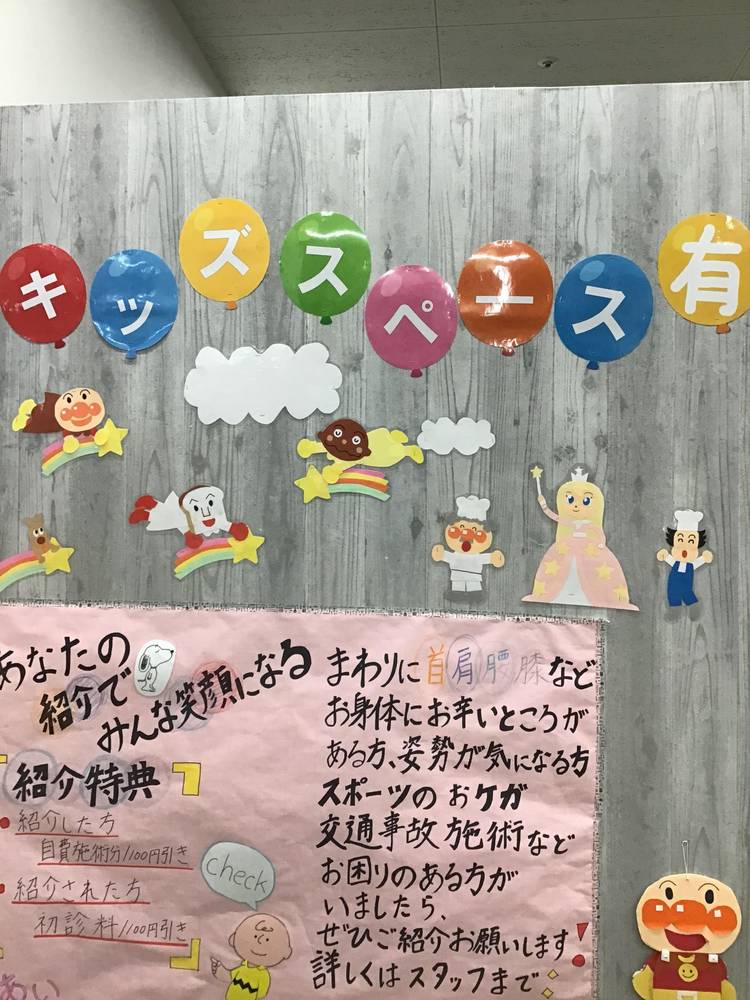 キッズスペース有
あなたの
紹介で
みんな笑顔になる
紹介特典
紹介した方
自費施術分1100円引き
紹介された方
初診料1100円引き
check
あい
まわりに首肩腰膝など
お身体にお辛いところが
ある方、姿勢が気になる方
スポーツのおケガ
交通事故施術など
お困りのある方が
いましたら、
ぜひご紹介お願いします!
詳しくはスタッフまで